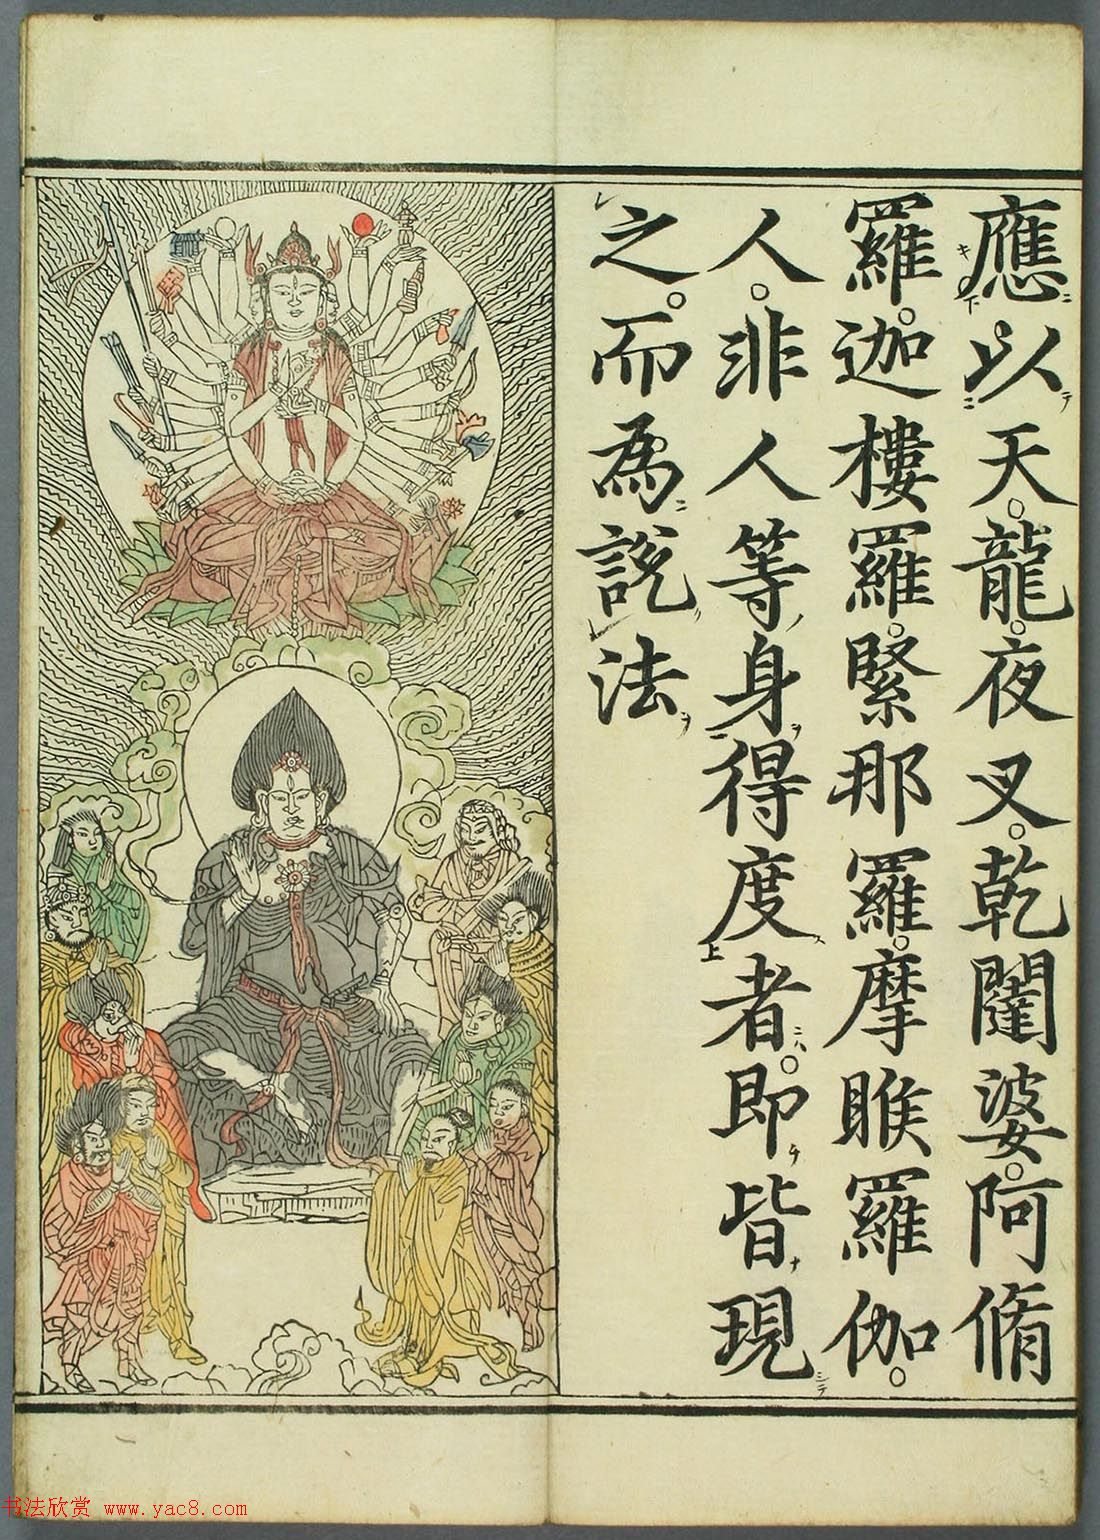 應以天。龍。夜叉。乾闥婆。阿脩
羅。迦樓羅。緊那羅。摩睺羅伽。
人。非人等身得度者。即皆現
之。而為説法
书法欣赏 www.yac8.com